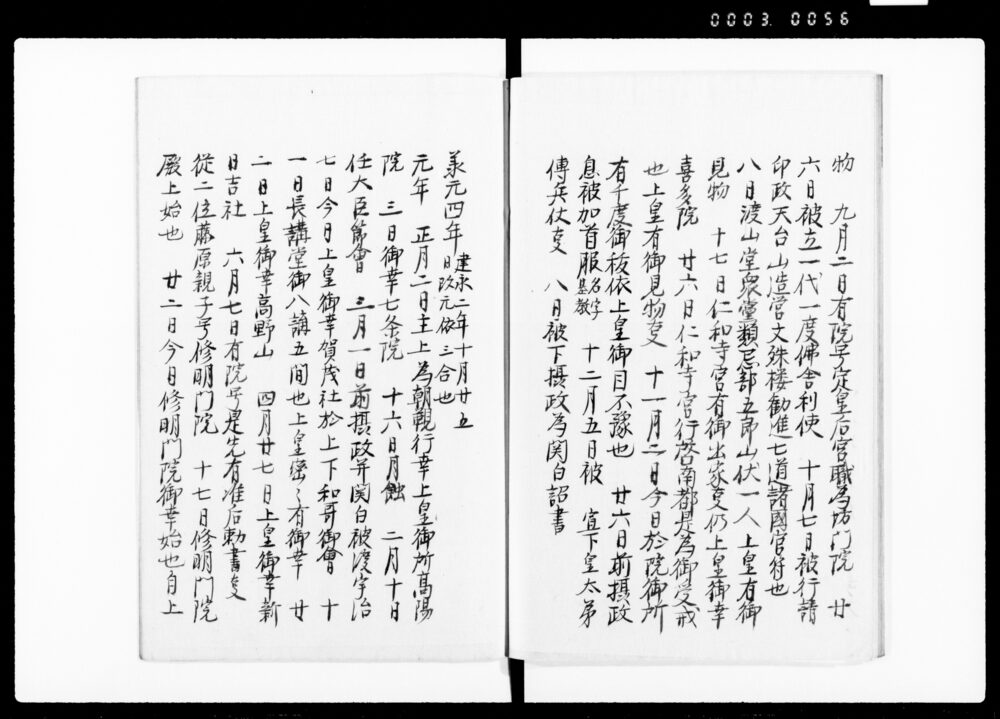 0003. 0056
物　九月二日有院号定皇后宮職為坊門院　廿
六日被立一代一度佛舎利使　十月七日被行請
印政天台山造営文殊楼勧進七道諸國官符也
八日渡山堂衆堂類忌部五郎山伏一人上皇有御
見物　十七日仁和寺宮有御出家叓仍上皇御幸
喜多院　廿六日仁和寺宮行啓南都是為御受戒
也上皇有御見物叓　十一月二日今日於院御所
有千度御秡依上皇御目不豫也　廿六日前摂政
息被加首服名字基教　十二月五日被　宣下皇太弟
傅兵仗叓　八日被下摂政為関白詔書
羕元四年建永二年十月廿五日改元依三合也
元年　正月二日主上為朝覲行幸上皇御所高陽
院　三日御幸七条院　十六日月蝕　二月十日
任大臣節會　三月一日前摂政并関白被渡宇治
七日今日上皇御幸賀茂社於上下和哥御會　十
一日長講堂御八講五間也上皇密〻有御幸　廿
二日上皇御幸高野山　四月廿七日上皇御幸新
日吉社　六月七日有院号是先有准后勅書叓
従二位藤原親子号修明門院　十七日修明門院
殿上始也　廿二日今日修明門院御幸始也自上